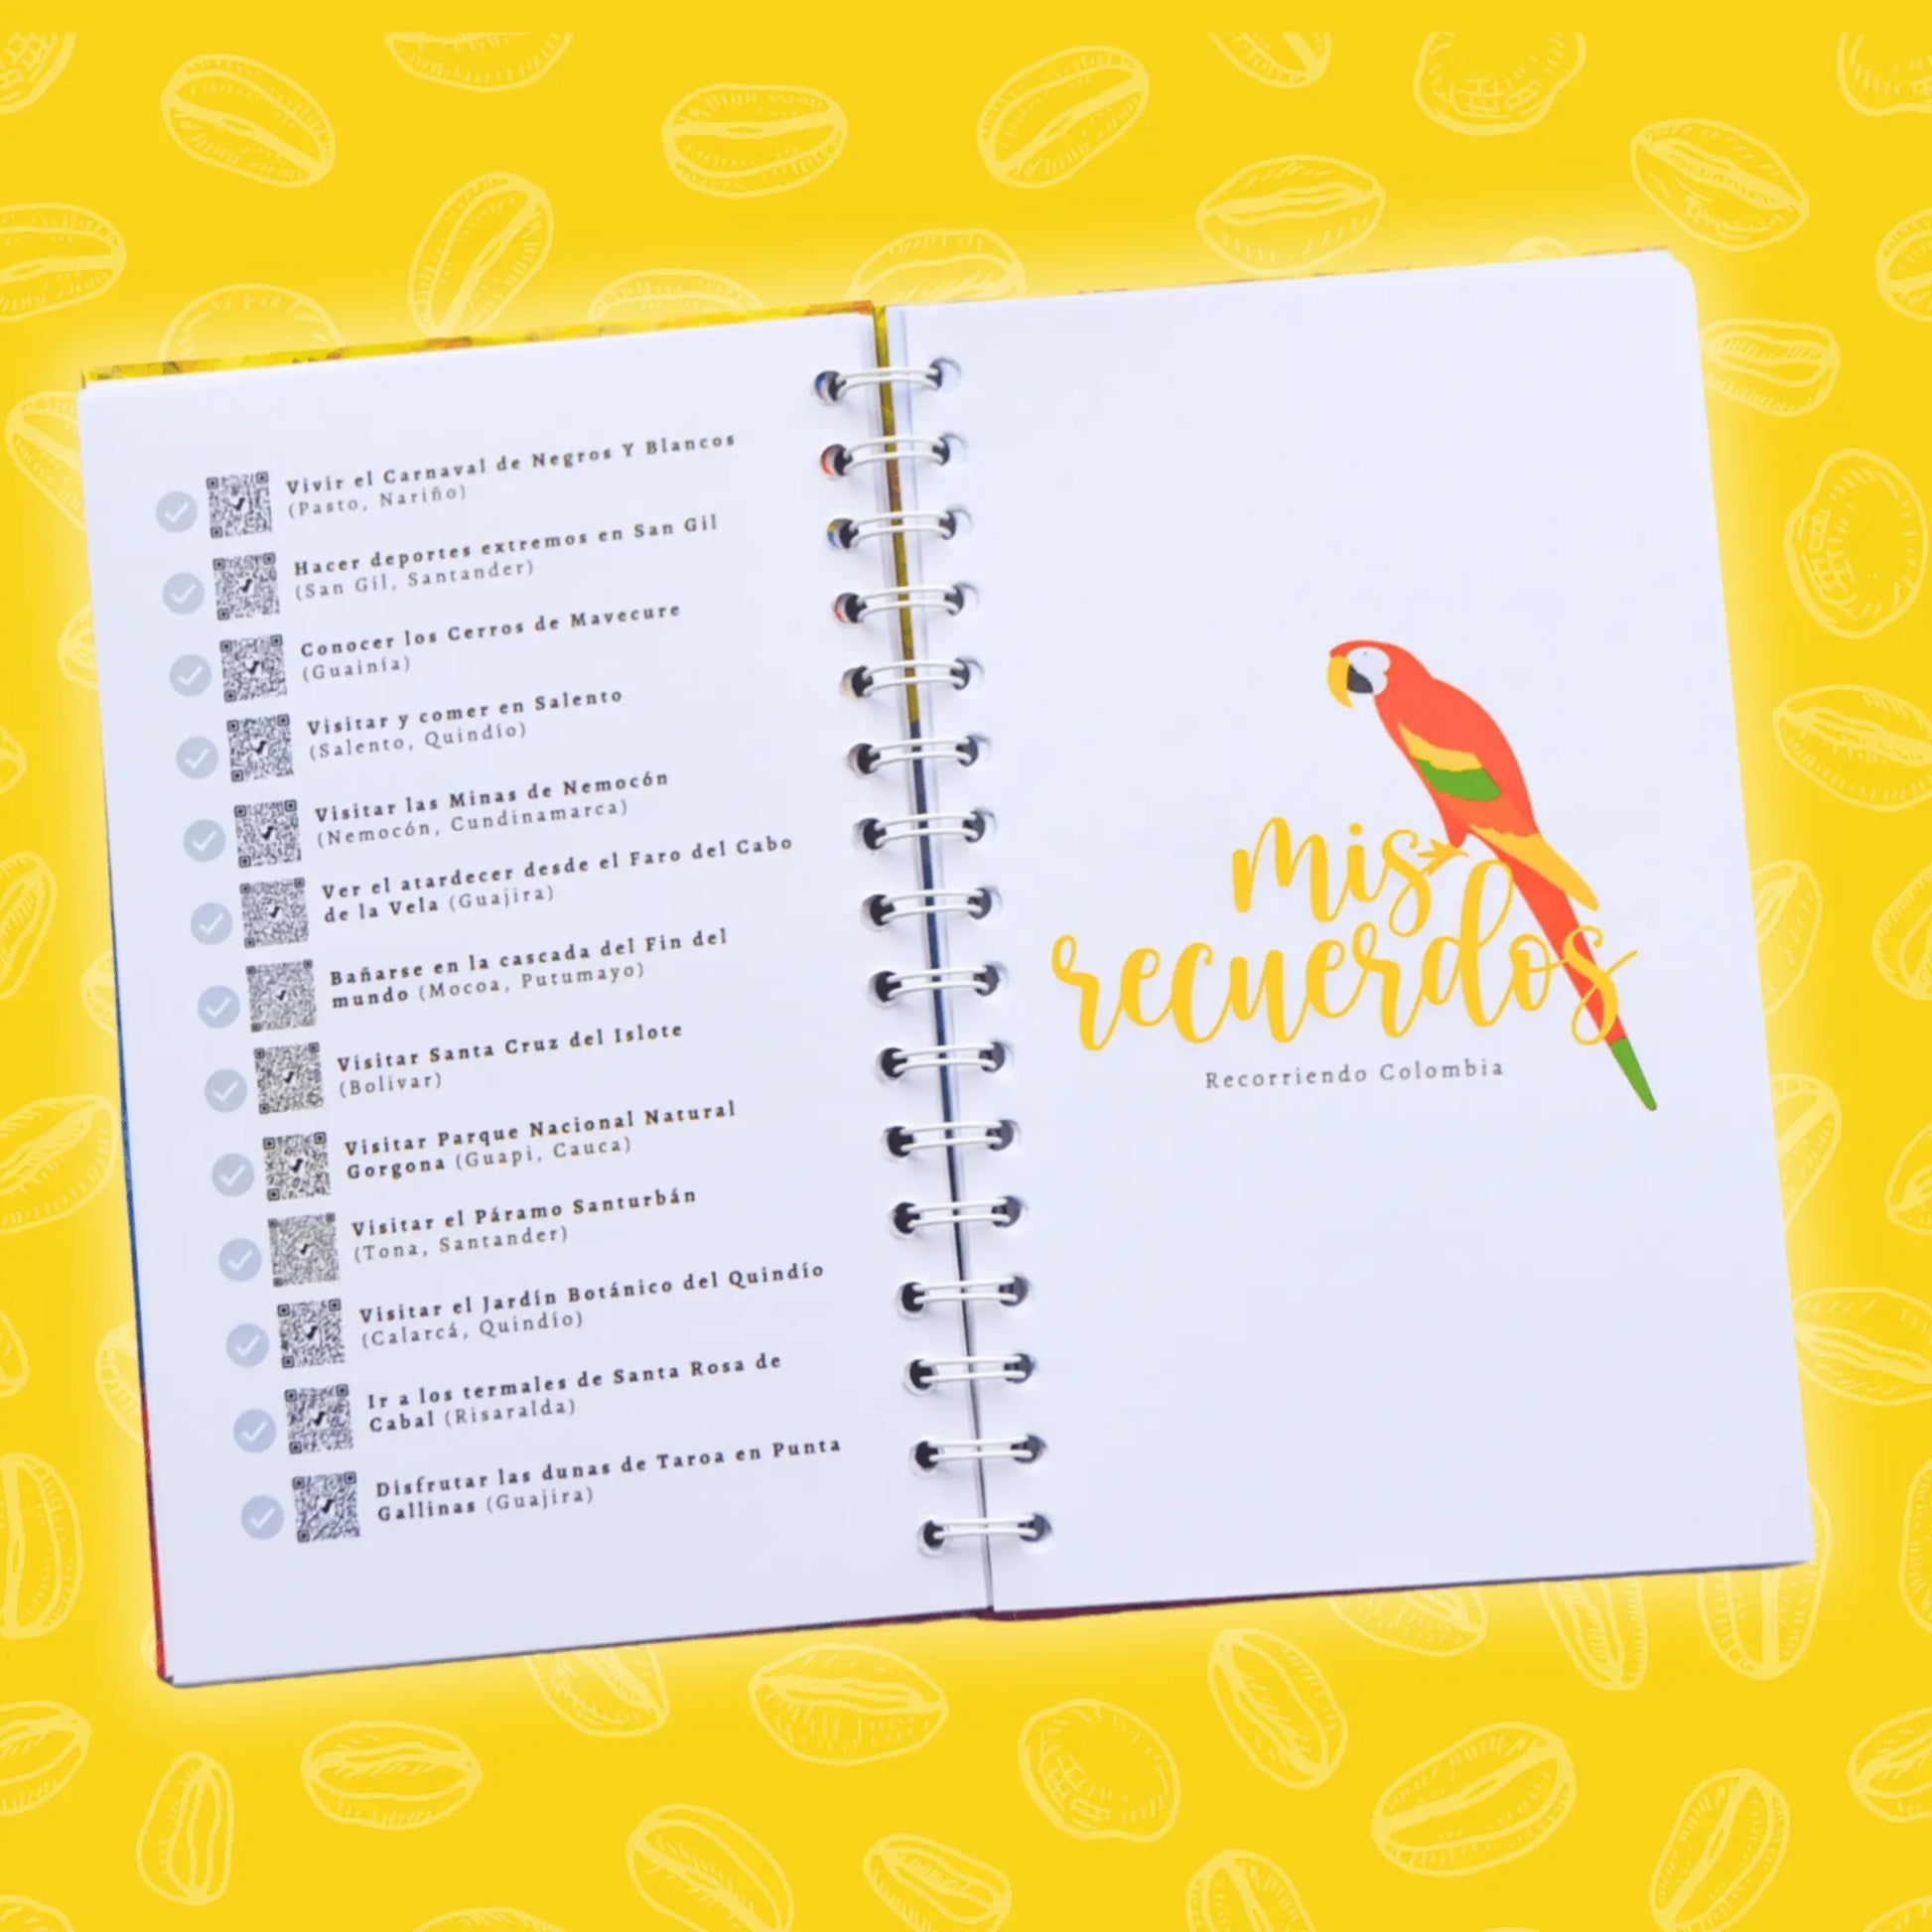 Vivir el Carnaval de Negros Y Blancos
(Pasto, Nariño)
Hacer deportes extremos en San Gil
(San Gil, Santander)
Conocer los Cerros de Mavecure
(Guainía)
Visitar y comer en Salento
(Salento, Quindío)
Visitar las Minas de Nemocón
(Nemocón, Cundinamarca)
Ver el atardecer desde el Faro del Cabo
de la Vela (Guajira)
Bañarse en la cascada del Fin del
mundo (Mocoa, Putumayo)
Visitar Santa Cruz del Islote
(Bolivar)
Visitar Parque Nacional Natural
Gorgona (Guapi, Cauca)
Visitar el Páramo Santurbán
(Tona, Santander)
Visitar el Jardín Botánico del Quindío
(Calarcá, Quindío)
Ir a los termales de Santa Rosa de
Cabal (Risaralda)
Disfrutar las dunas de Taroa en Punta
Gallinas (Guajira)
mis
recuerdos
Recorriendo Colombia